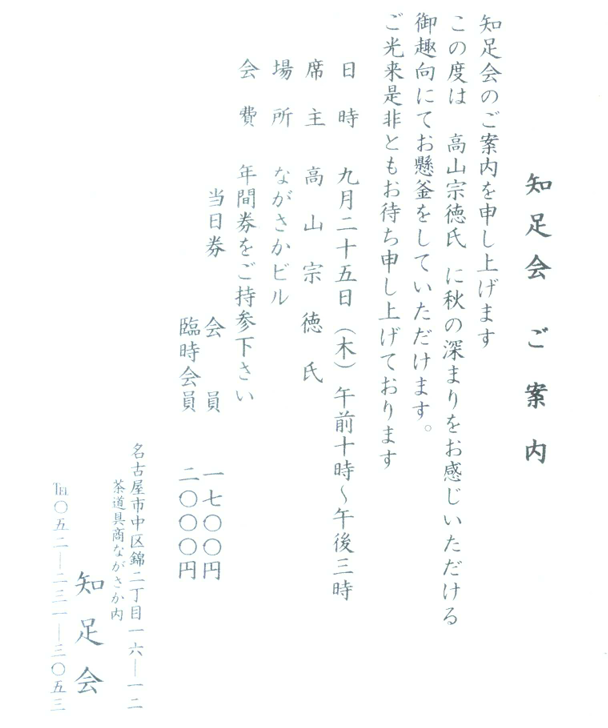 知足会 ご案内
知足会のご案内を申し上げます
この度は 高山宗徳氏 に秋の深まりをお感じいただける
御趣向にてお懸釜をしていただけます。
ご光来是非ともお待ち申し上げております
日時 九月二十五日(木)午前十時~午後三時
席主 高山宗徳氏
場所 ながさかビル
会費 年間券をご持参下さい
当日券 会員 一七〇〇円
臨時会員 二〇〇〇円
名古屋市中区錦二丁目一六―一二
茶道具商ながさか内
知足会
℡〇五二―二三一―三〇五三